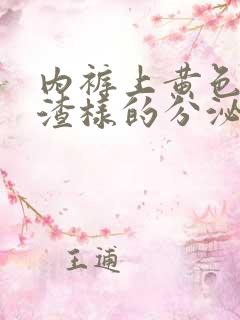 内裤上黄色
渣样的分泌
王通